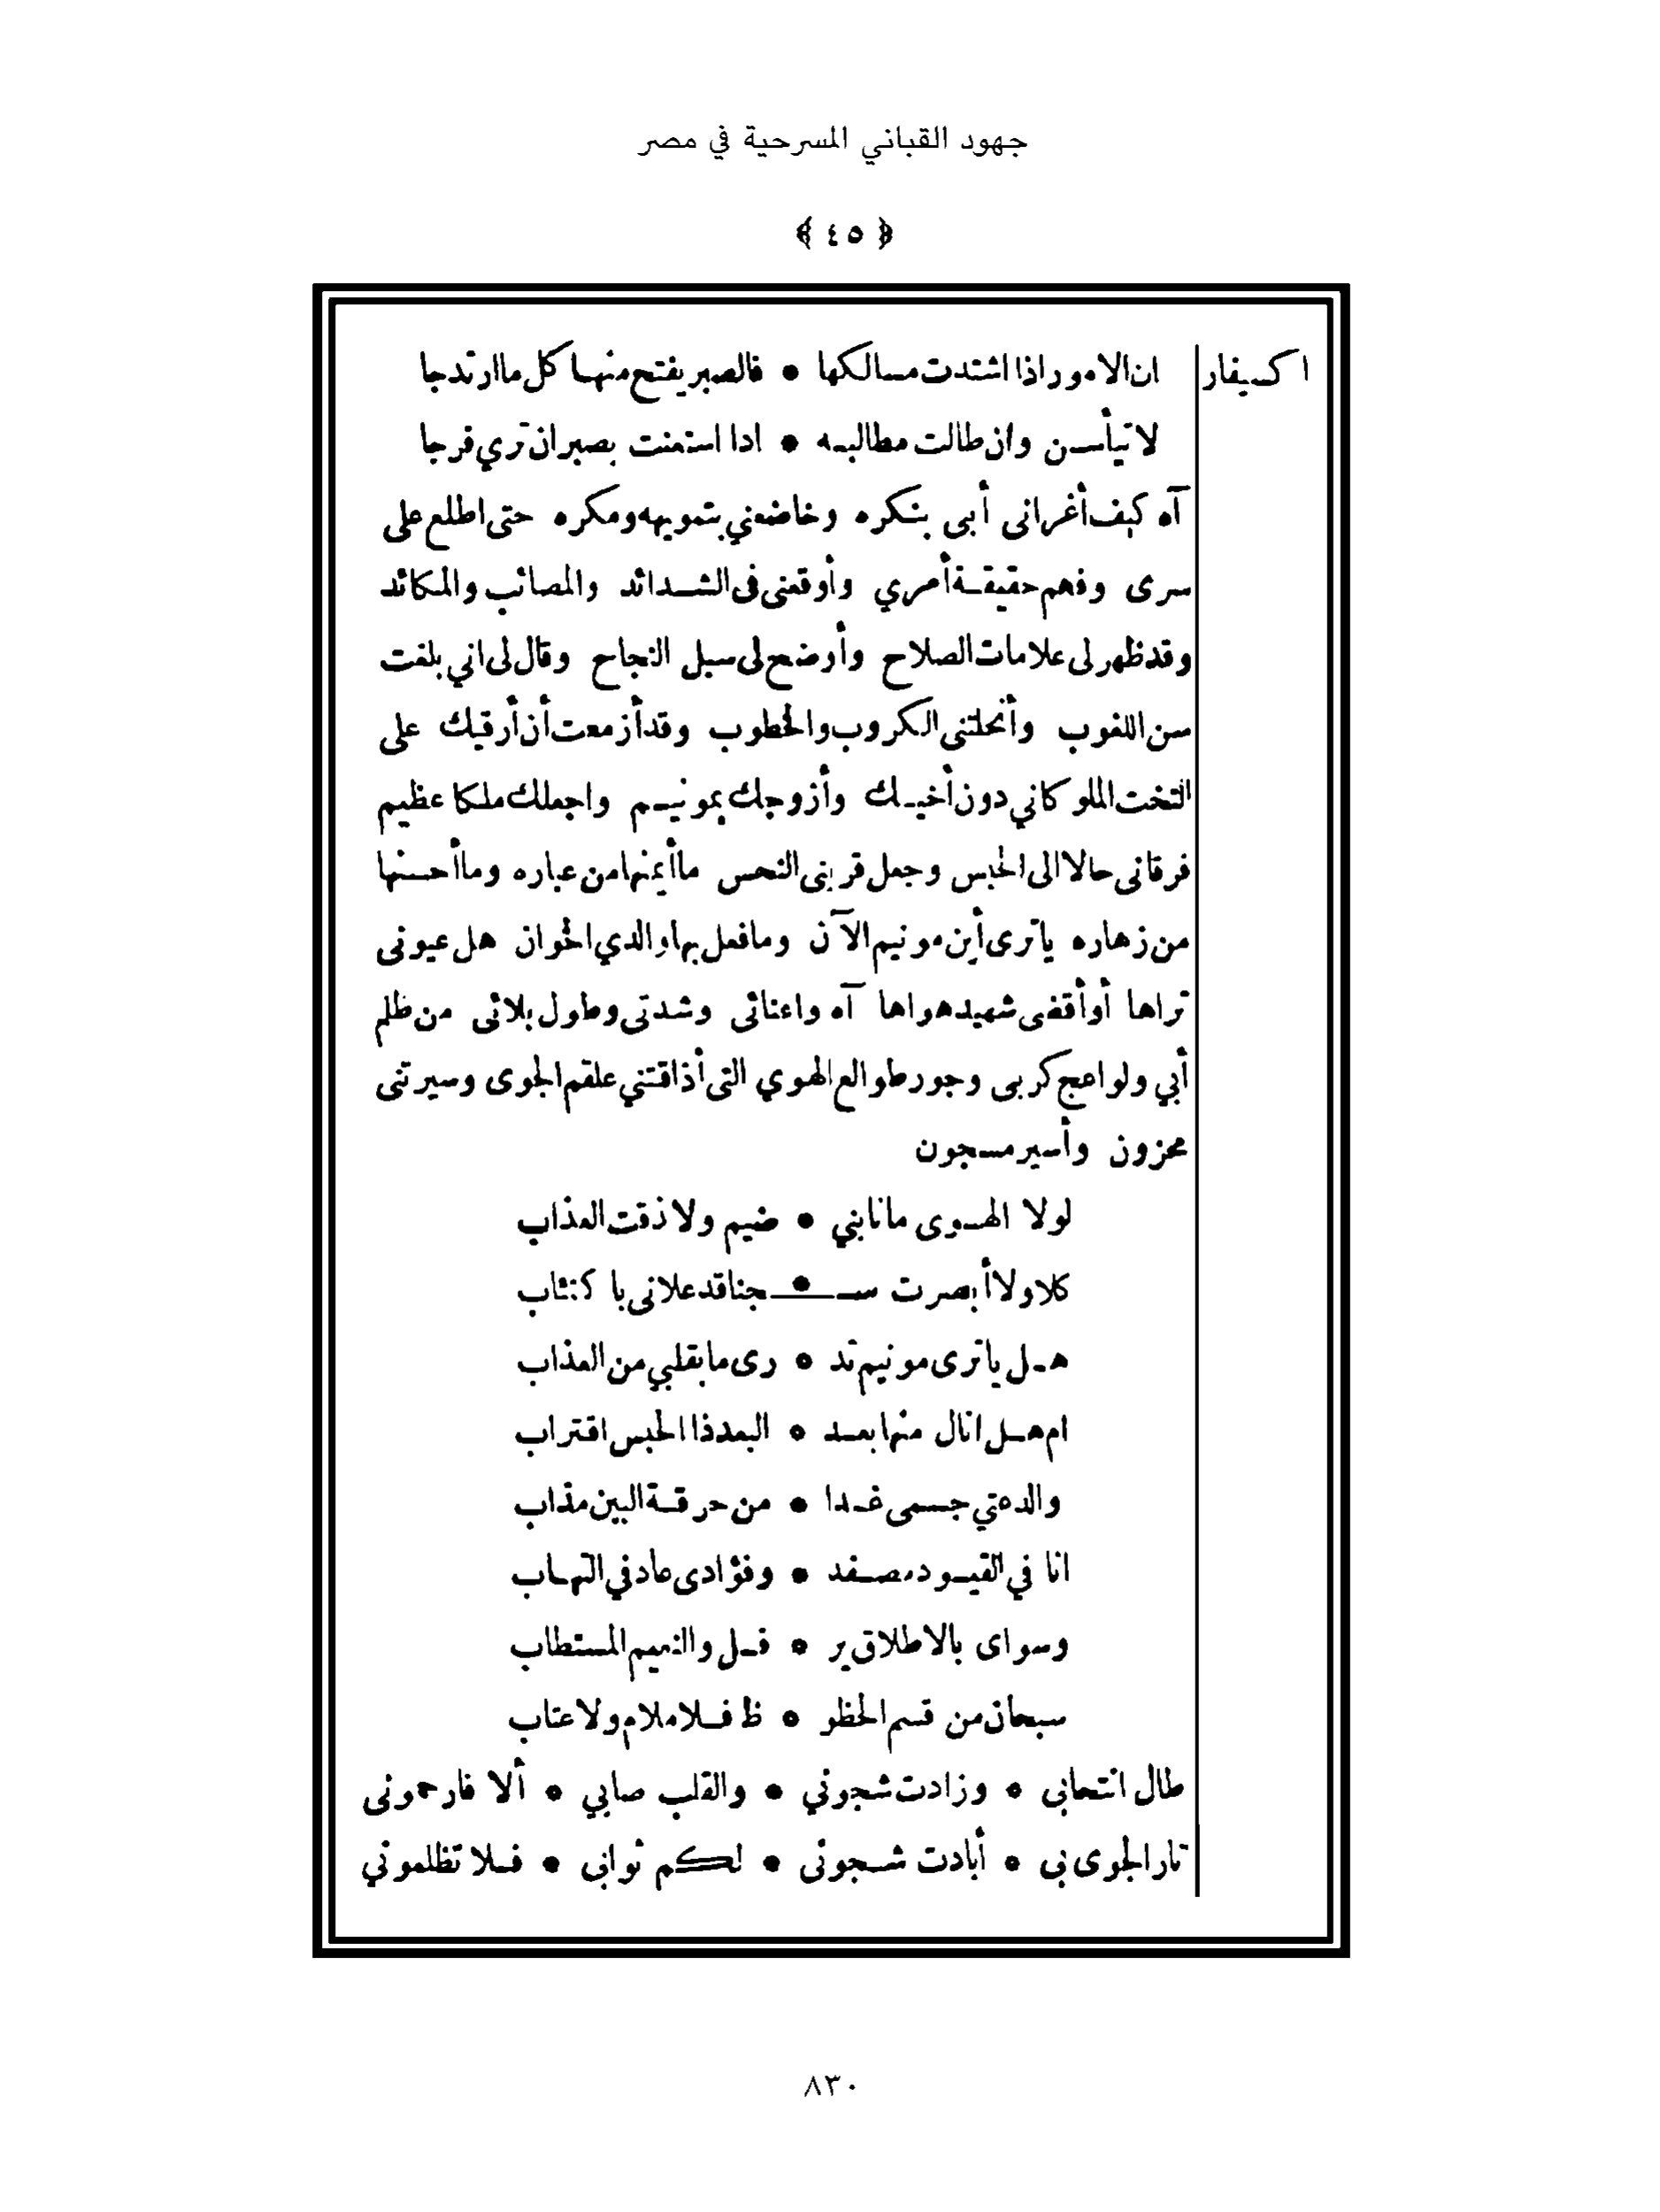 جهود القباني المسرحية في مصر
﴿ ٤٥ ﴾
اكسيفار ان الامور اذا اشتدت مسالكها * فالصبر يفتح منها كل ما ارتدجا
لا تيأسن وان طالت مطالبه * اذا استعنت بصبر ان تري فرجا
آه كيف أغرانى أبى بنكره وخاضعني بتمويهه ومكره حتى اطلع على
سرى وفهم حقيقة أمري وأوقعنى فى الشدائد والمصائب والمكائد
وقد ظهر لى علامات الصلاح وأوضح لى سبل النجاح وقال لى اني بلغت
سن اللغوب وأنحلتنى الكروب والخطوب وقد أزمعت أن أرقيك على
التخت الملوكاني دون أخيك وأزوجك بمونيم واجعلك ملكا عظيم
فرقانى حالا الى الحبس وجعل قرينى النحس ما أيمنها من عباره وما أحسنها
من زهاره يا ترى أين مونيم الآن وما فعل بها والدي الخوان هل عيونى
تراها أو أقضى شهيد هواها آه واعنائى وشدتى وطول بلائى من ظلم
أبي ولواعج كربى وجور طوالع الهوي التى أذاقتني علقم الجوى وسيرتنى
محزون وأسير مسجون
لولا الهوى ما نابني * ضيم ولا ذقت العذاب
كلا ولا أبصرت سـ * ـجنا قد علانى باكتئاب
هل يا ترى مونيم تد * رى ما بقلبي من العذاب
ام هل انال منها بعد * البعد ذا الحبس اقتراب
والدهتي جسمى غدا * من حرقة البين مذاب
انا في القيود مصفد * وفؤادى عاد في التهاب
وسواى بالاطلاق ير * فل والنعيم المستطاب
سبحان من قسم الحظو * ظ فلا ملام ولا عتاب
طال انتحابى * وزادت شجوني * والقلب صابي * ألا فارحمونى
نار الجوى بى * أبادت شجونى * لكم ثوابى * فلا تظلموني
٨٣٠